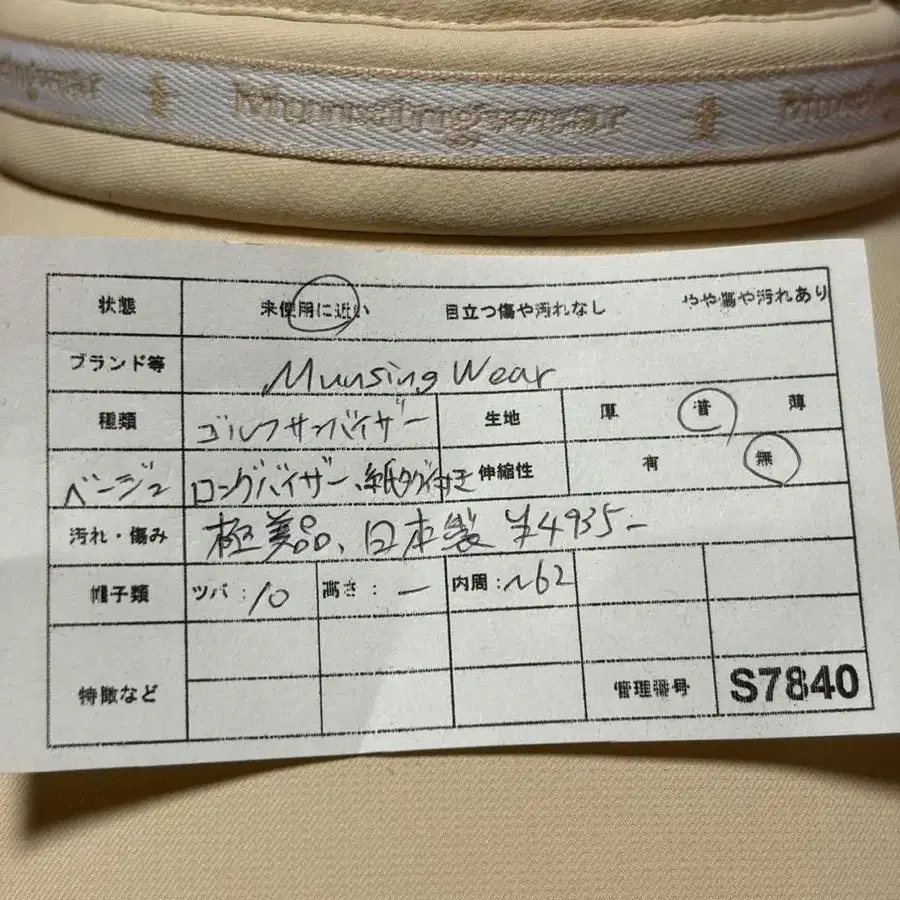 Munsingwear
状態 未使用に近い 目立つ傷や汚れなし やや傷や汚れあり
ブランド等 Munsing Wear
種類 ゴルフサンバイザー 生地 厚 普 薄
ベージュ ロングバイザー、紙タグ付き 伸縮性 有 無
汚れ・傷み 極美品、日本製 ¥4935-
帽子類 ツバ:10 高さ:- 内周:~62
特徴など 管理番号 S7840